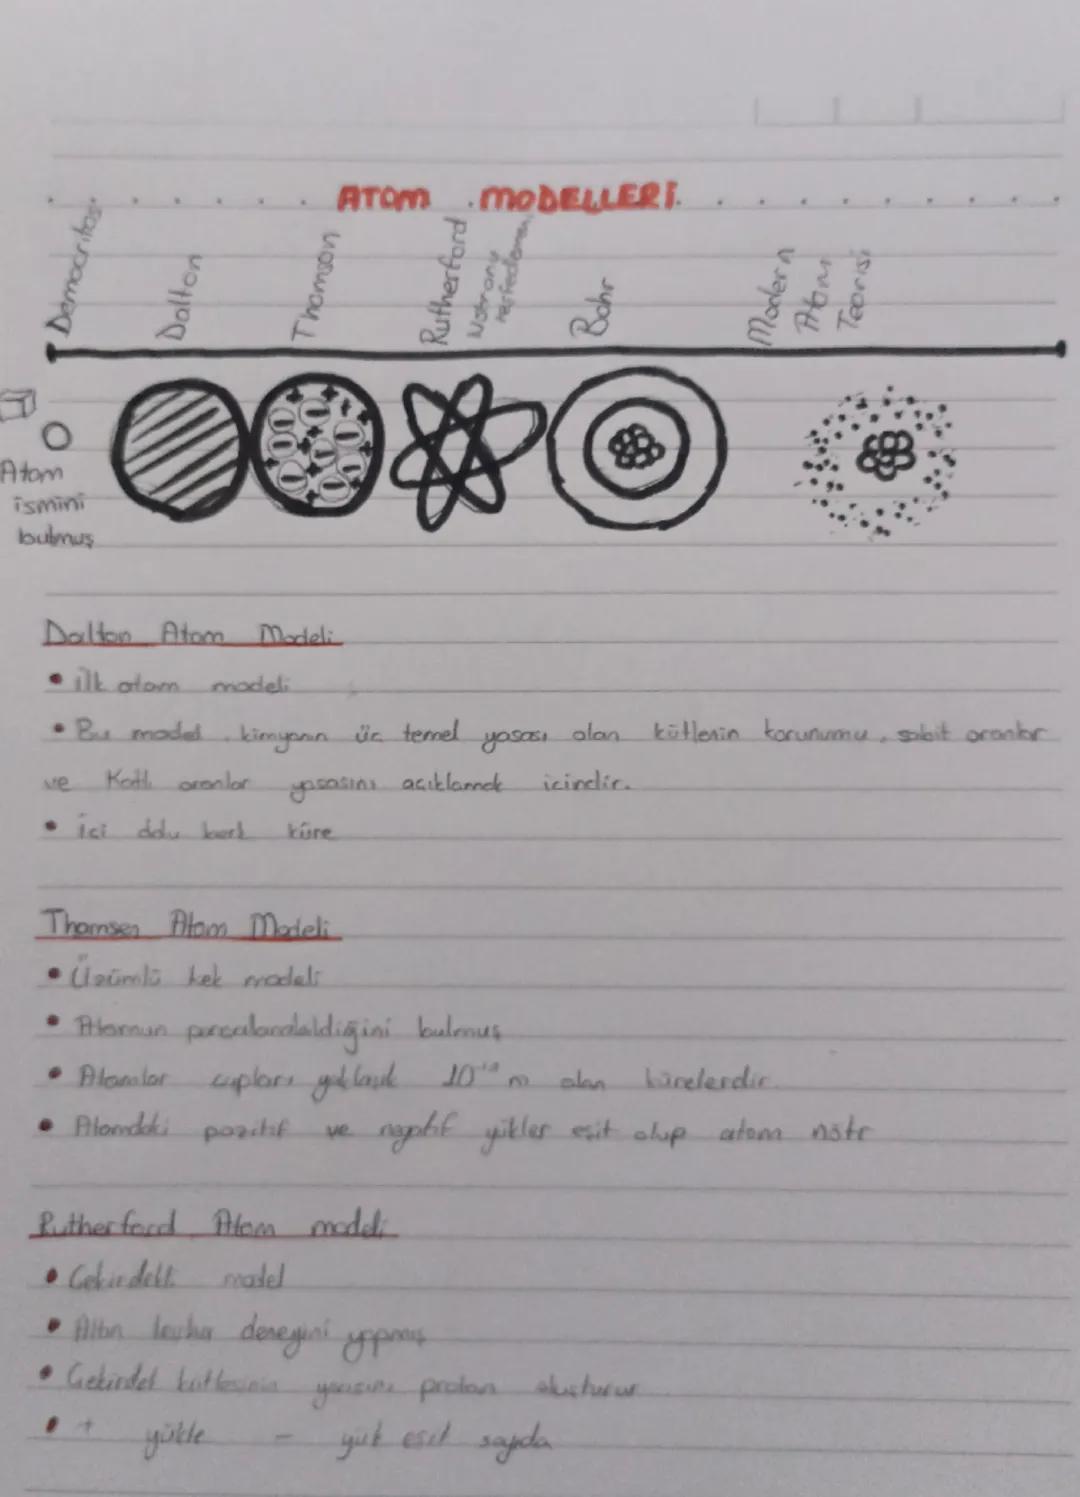 ATOM MODELLERİ
Democritos
Dalton
Thomson
Rutherford
Nötronu
keşfedemem
Bohr
Modern
Atom
Teorisi
Atom
ismini
bulmuş
Dalton Atom Modeli
• ilk atom modeli
• Bu model kimyanın üç temel yasası olan kütlenin korunumu, sabit oranlar
ve Katlı oranlar yasasını açıklamak içindir.
• içi dolu berk küre
Thomson Atom Modeli
• Üzümlü kek modeli
• Atomun parçalanabildiğini bulmuş
• Atomlar çapları yaklaşık 10⁻¹⁰ m olan kürelerdir.
• Atomdaki pozitif ve negatif yükler eşit olup atom nötr
Rutherford Atom modeli
• Çekirdekli model
• Altın levha deneyini yapmış
• Çekirdek kütlesinin yarısını proton oluşturur
• + yükle - yük eşit sayıda